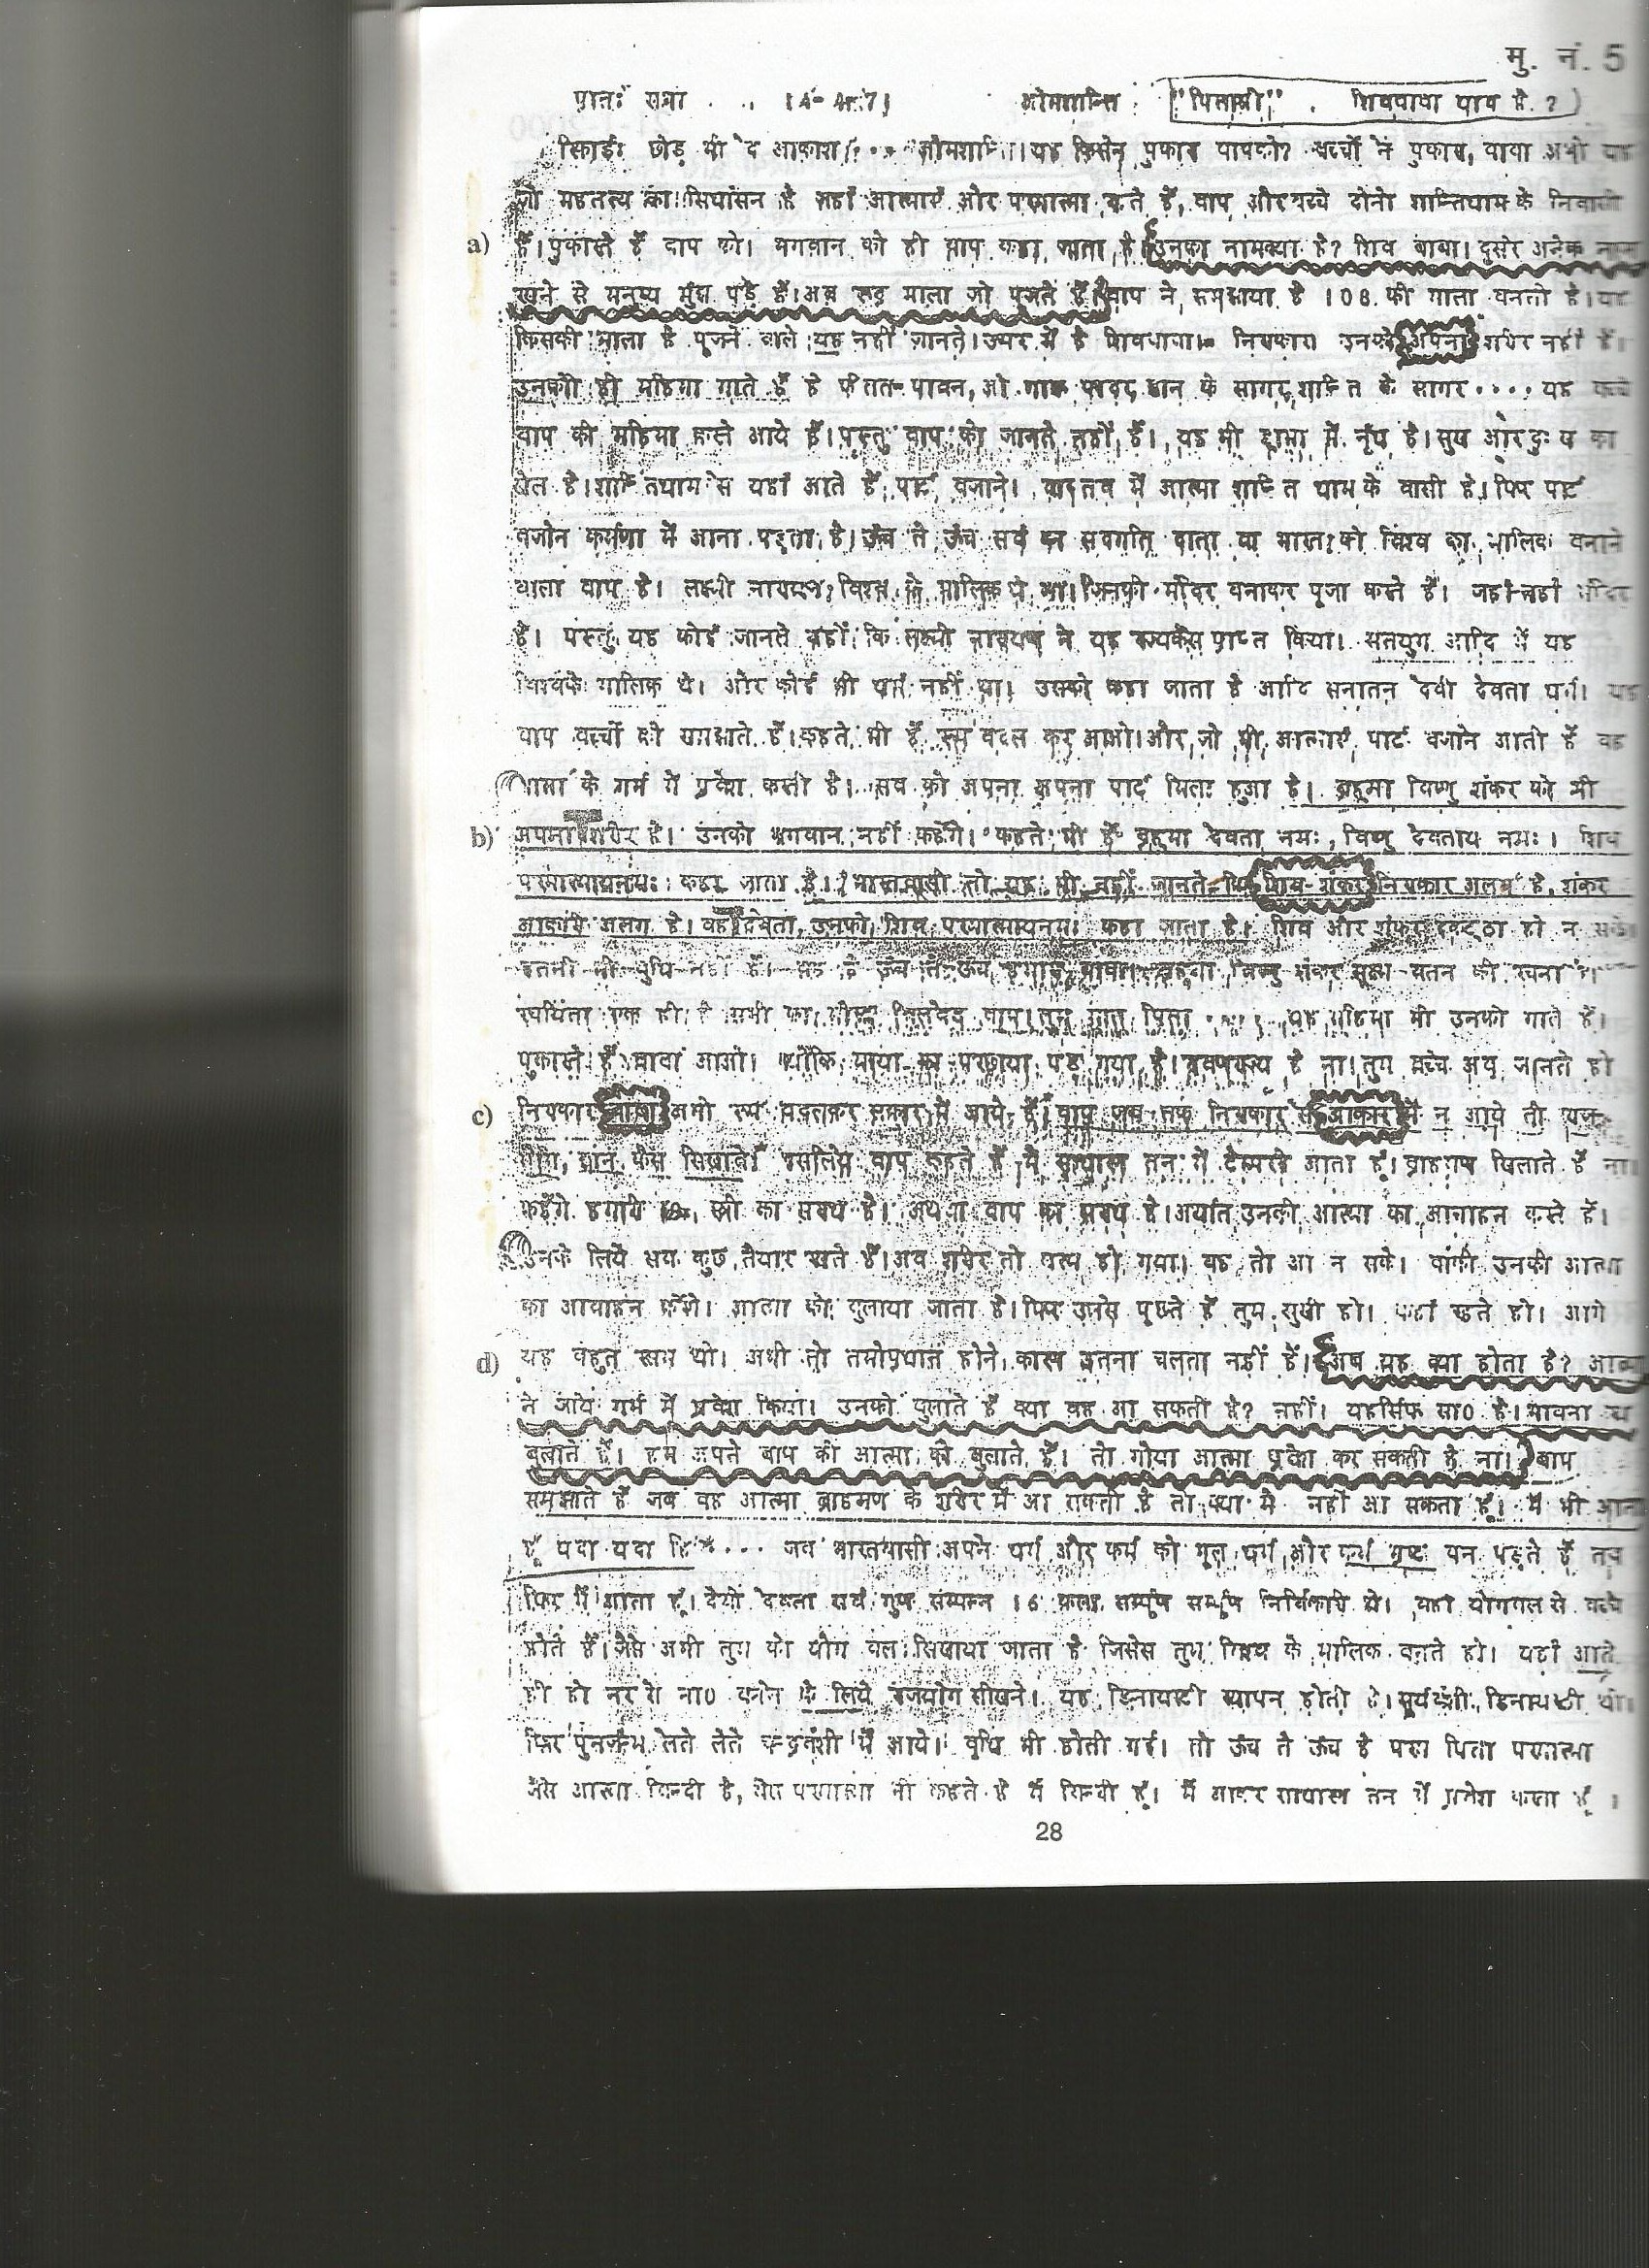 मु. नं. 5
प्रातः ओमशान्ति "पिताश्री" शिवबाबा याद है ?
रिकार्ड: छोड़ भी दे आकाश ओमशान्ति। यह किसने पुकारा बापको? बच्चों ने पुकारा, बाबा
जो महतत्व का सिंघासन है जहां आत्माएं और परमात्मा रहते हैं, बाप और बच्चे दोनो शान्तिधाम के निवासी
a) हैं। पुकारते हैं बाप को। भगवान को ही बाप कहा जाता है। उनका नाम क्या है? शिव बाबा। दुसरे अनेक नाम
रखने से मनुष्य मुंझ पड़े हैं। अब रुद्र माला जो पूजते हैं। बाप ने समझाया है 108 की माला बनती है। यह
किसकी माला है पूजने वाले यह नहीं जानते। उपर में है शिवबाबा। निराकार उनको अपना शरीर नहीं है।
उनकी ही महिमा गाते हैं हे पतित-पावन, ओ गाड फादर ज्ञान के सागर, शान्ति के सागर .... यह
बाप की महिमा करते आये हैं। परन्तु बाप को जानते नहीं हैं। यह भी ड्रामा में नूंध है। सुख और दुःख का
खेल है। शान्तिधाम से यहां आते हैं पार्ट बजाने। वास्तव में आत्मा शान्ति धाम के वासी है। फिर पार्ट
बजाने कर्मणा में आना पड़ता है। ऊंच ते ऊंच सर्व का सदगति दाता वा भारत को विश्व का मालिक बनाने
वाला बाप है। लक्ष्मी नारायण विश्व के मालिक थे ना। जिनकी मंदिर बनाकर पूजा करते हैं। जहां-तहां मंदिर
है। परन्तु यह कोई जानते नहीं कि लक्ष्मी नारायण ने यह प्राप्त किया। सतयुग आदि में यह
विश्वके मालिक थे। और कोई भी धर्म नहीं था। उसको कहा जाता है आदि सनातन देवी देवता धर्म। यह
बाप बच्चों को समझाते हैं। कहते भी हैं रूप बदल कर आओ। और जो भी आत्माएं पार्ट बजाने आती हैं वह
माता के गर्भ में प्रवेश करती है। सब को अपना अपना पार्ट मिला हुआ है। ब्रहमा विष्णु शंकर को भी
b) अपना शरीर है। उनको भगवान नहीं कहेंगे। कहते भी हैं ब्रहमा देवता नमः, विष्णु देवताय नमः। शिव
परमात्मायनमः कहा जाता है। भारतवासी तो यह भी नहीं जानते कि शिव-शंकर निराकार अलग है, शंकर
आकारी अलग है। वह देवता, उनको शिव परमात्मायनमः कहा जाता है। शिव और शंकर इकट्ठा हो न सके।
इतनी भी बुधि नहीं है। यह है ऊंच ते ऊंच हमारा बाबा। ब्रहमा विष्णु शंकर सूक्ष्म वतन की रचना है।
रचयिता एक ही है सभी का तुम मात पिता .... यह महिमा भी उनकी गाते हैं।
पुकारते हैं बाबा आओ। क्योंकि माया का परछाया पड़ गया है। रावणराज्य है ना। तुम बच्चे अब जानते हो
c) निराकार बाबा अभी रूप बदलकर साकार में आये हैं। बाप जब तक निराकार से आकार में न आये तो
योग, ज्ञान कैसे सिखावे। इसलिए बाप कहते हैं मैं साधारण तन में आता हूं। ब्राहमण खिलाते हैं ना
कहेंगे हमारी स्त्री का सराध है। अथवा बाप का सराध है। अर्थात उनकी आत्मा का आवाहन करते हैं।
उनके लिये सब कुछ तैयार रखते हैं। अब शरीर तो खत्म हो गया। वह तो आ न सके। बाकी उनकी आत्मा
का आवाहन करेंगे। आत्मा को बुलाया जाता है। फिर उनसे पूछते हैं तुम सुखी हो। कहां रहते हो। आगे
d) यह बहुत रसम थी। अभी तो तमोप्रधान होने कारण इतना चलता नहीं है। अब यह क्या होता है? आत्मा
ने जाये गर्भ में प्रवेश किया। उनको बुलाते हैं क्या वह आ सकती है? नहीं। यह सिर्फ सा0 है। भावना
बुलाते हैं। हम अपने बाप की आत्मा को बुलाते हैं। तो गोया आत्मा प्रवेश कर सकती है ना। बाप
समझाते हैं जब वह आत्मा ब्राहमण के शरीर में आ सकती है तो क्या मैं नहीं आ सकता हूं। मैं भी आता
हूं यदा यदा हि .... जब भारतवासी अपने धर्म और कर्म को भूल धर्म और कर्म भ्रष्ट बन पड़ते हैं तब
फिर मैं आता हूं। देवी देवता सर्व गुण सम्पन्न 16 कला सम्पूर्ण सम्पूर्ण निर्विकारी थे। वहां योगबल से बच्चे
होते हैं। जैसे अभी तुम को योग बल सिखाया जाता है जिससे तुम विश्व के मालिक बनते हो। यहां आते
ही हो नर से ना0 बनने के लिये राजयोग सीखने। यह डिनायस्टी स्थापन होती है। सूर्यवंशी डिनायस्टी थी।
फिर पुनर्जन्म लेते लेते चन्द्रवंशी में आये। वृधि भी होती गई। तो ऊंच ते ऊंच है परम पिता परमात्मा
जैसे आत्मा बिन्दी है, वैसे परमात्मा भी कहते है मैं बिन्दी हूं। मैं आकर साधारण तन में प्रवेश करता हूं।
28